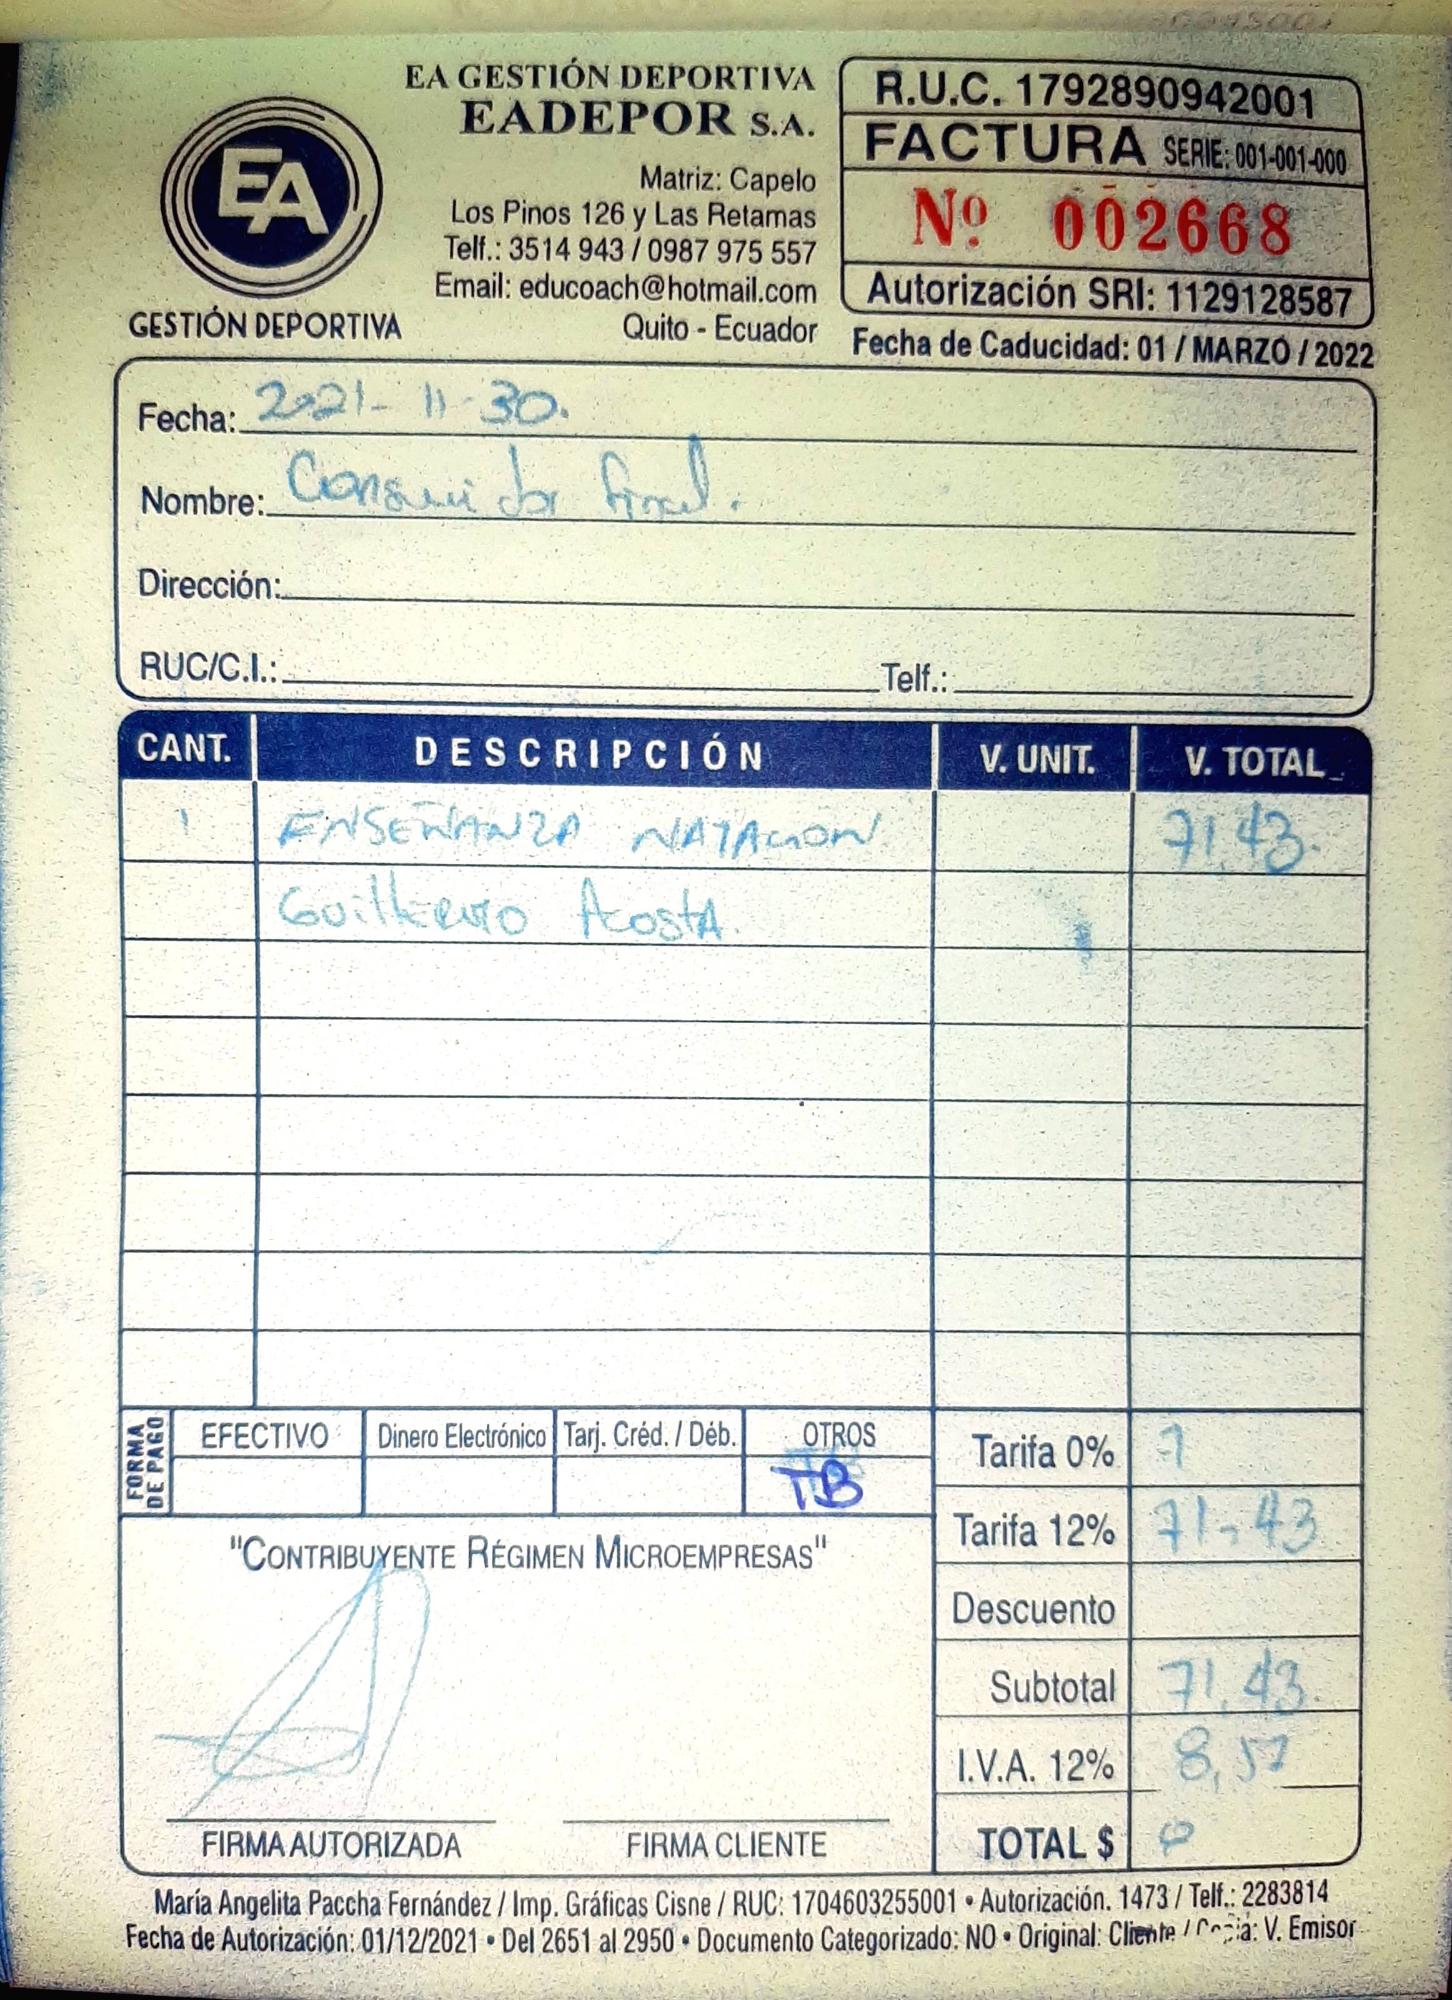 EA GESTIÓN DEPORTIVA
EADEPOR S.A.
EA
GESTIÓN DEPORTIVA
Matriz: Capelo
Los Pinos 126 y Las Retamas
Telf.: 3514 943 / 0987 975 557
Email: educoach@hotmail.com
Quito - Ecuador
R.U.C. 1792890942001
FACTURA SERIE: 001-001-000
Nº 002668
Autorización SRI: 1129128587
Fecha de Caducidad: 01 / MARZO / 2022
Fecha: 2021-11-30.
Nombre: Consumidor final.
Dirección:
RUC/C.I.: Telf.:
CANT. DESCRIPCIÓN V. UNIT. V. TOTAL
1 ENSEÑANZA NATACIÓN 71,43.
Guillermo Acosta.
FORMA DE PAGO
EFECTIVO Dinero Electrónico Tarj. Créd. / Déb. OTROS
TB
Tarifa 0%
Tarifa 12% 71,43
Descuento
Subtotal 71,43.
I.V.A. 12% 8,57
TOTAL $
"CONTRIBUYENTE RÉGIMEN MICROEMPRESAS"
FIRMA AUTORIZADA FIRMA CLIENTE
María Angelita Paccha Fernández / Imp. Gráficas Cisne / RUC: 1704603255001 • Autorización. 1473 / Telf.: 2283814
Fecha de Autorización: 01/12/2021 • Del 2651 al 2950 • Documento Categorizado: NO • Original: Cliente / Copia: V. Emisor